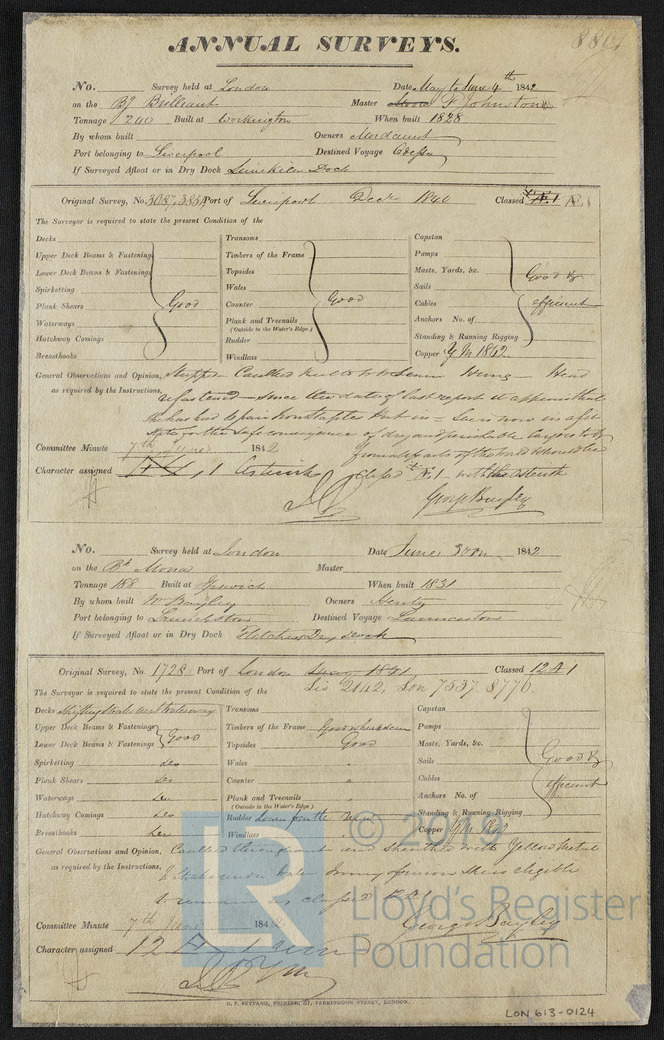 8801
ANNUAL SURVEYS.
No. Survey held at London Date May to June 4th 1842
on the Bg Brilliant Master F Johnstone
Tonnage 240 Built at Workington When built 1828
By whom built Owners Mordaunt
Port belonging to Liverpool Destined Voyage Odessa
If Surveyed Afloat or in Dry Dock Limekiln Dock
Original Survey, No. 3087, Port of Liverpool Decr 1840 Classed Æ.1 Æ.1
The Surveyor is required to state the present Condition of the
Decks Transoms Capstan
Upper Deck Beams & Fastenings Timbers of the Frame Pumps
Lower Deck Beams & Fastenings Topsides Masts, Yards, &c. Good &
Spirketting Wales Sails
Plank Shears Good Counter Good Cables efficient
Waterways Plank and Treenails Anchors No. of
(Outside to the Water's Edge.)
Hatchway Comings Rudder Standing & Running Rigging
Breasthooks Windlass Copper YM 1842
General Observations and Opinion, Stripped Caulked Wing Head
as required by the Instructions, refastened – Since the date of last report it appears that
she has had repair Iron Staples put in – She is now in a fit
state for the safe conveyance of dry and perishable Cargoes to &
from all parts of the world & should be
Committee Minute 7th June 1842
Character assigned 1 Asterisk Classed * Æ.1 with the Asterisk
George Bayley
No. Survey held at London Date June 3rd 1842
on the Bk Monar Master
Tonnage 188 Built at Ipswich When built 1831
By whom built Wm Bayley Owners Henty
Port belonging to Launceston Destined Voyage Launceston
If Surveyed Afloat or in Dry Dock Fletchers Dry Dock
Original Survey, No 1728 Port of London 1831 Classed 12 A 1
The Surveyor is required to state the present Condition of the Lis 2142, Lon 7537. 8776.
Decks Transoms Capstan
Upper Deck Beams & Fastenings Timbers of the Frame Good where seen Pumps
Lower Deck Beams & Fastenings Good Topsides Good Masts, Yards, &c.
Spirketting Do Wales Sails Good &
Plank Shears Do Counter Cables efficient
Waterways Do Plank and Treenails Anchors No. of
(Outside to the Water's Edge.)
Hatchway Comings Do Rudder Standing & Running Rigging
Breasthooks Do Windlass Copper YM 1842
General Observations and Opinion, Caulked throughout and sheathed with Yellow Metal
as required by the Instructions, In my opinion she is eligible
to remain as classed
Committee Minute 7th June 1842 George Bayley
Character assigned 12 A 1
G. F. SEYFANG, PRINTER, 57, FARRINGDON STREET, LONDON.
© 2019
LR
Lloyd's Register
Foundation
LON 613-0124